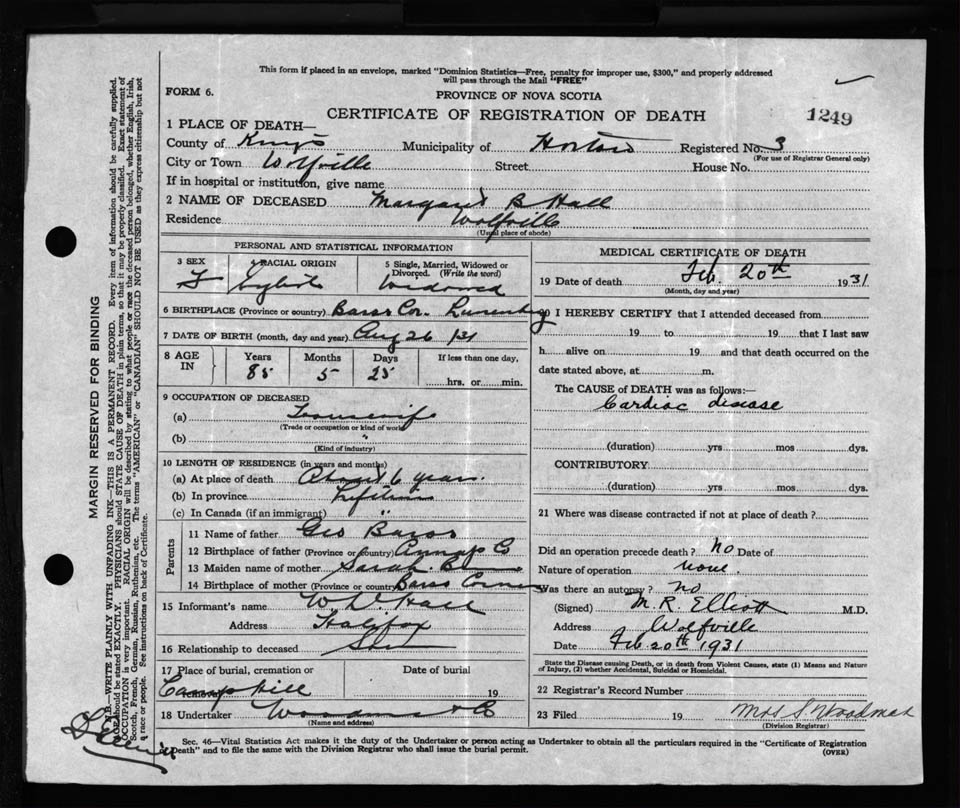 This form if placed in an envelope, marked "Dominion Statistics—Free, penalty for improper use, $300," and properly addressed
will pass through the Mail "FREE"
FORM 6.
PROVINCE OF NOVA SCOTIA
CERTIFICATE OF REGISTRATION OF DEATH
1249
1 PLACE OF DEATH—
County of Kings Municipality of Horton Registered No. 3
(For use of Registrar General only)
City or Town Wolfville Street House No.
If in hospital or institution, give name
2 NAME OF DECEASED Margaret B Hall
Residence Wolfville
(Usual place of abode)
PERSONAL AND STATISTICAL INFORMATION
3 SEX F
4 RACIAL ORIGIN English
5 Single, Married, Widowed or Divorced. (Write the word) Widowed
6 BIRTHPLACE (Province or country) Barss Cor. Lunenburg
7 DATE OF BIRTH (month, day and year) Aug 26
8 AGE IN Years 85 Months 5 Days 25 If less than one day, hrs. or min.
9 OCCUPATION OF DECEASED
(a) Housewife
(Trade or occupation or kind of work)
(b) "
(Kind of industry)
10 LENGTH OF RESIDENCE (in years and months)
(a) At place of death About 6 years.
(b) In province Lifetime
(c) In Canada (if an immigrant) "
Parents
11 Name of father Geo Barss
12 Birthplace of father (Province or country) Annap Co
13 Maiden name of mother Sarah
14 Birthplace of mother (Province or country) Barss Corner
15 Informant's name W D. Hall
Address Halifax
16 Relationship to deceased Son
17 Place of burial, cremation or Date of burial
Camp Hill 19
18 Undertaker Woodman & Co
(Name and address)
MEDICAL CERTIFICATE OF DEATH
19 Date of death Feb. 20th 1931
(Month, day and year)
20 I HEREBY CERTIFY that I attended deceased from
19 to 19 that I last saw
h alive on 19 and that death occurred on the
date stated above, at m.
The CAUSE of DEATH was as follows:—
Cardiac disease
(duration) yrs mos dys.
CONTRIBUTORY
(duration) yrs mos dys.
21 Where was disease contracted if not at place of death?
Did an operation precede death? No Date of
Nature of operation none.
Was there an autopsy? No
(Signed) M. R. Elliott M.D.
Address Wolfville
Date Feb 20th 1931
State the Disease causing Death, or in death from Violent Causes, state (1) Means and Nature
of Injury, (2) whether Accidental, Suicidal or Homicidal.
22 Registrar's Record Number
23 Filed 19 Mrs S. Woodman
(Division Registrar)
Sec. 46—Vital Statistics Act makes it the duty of the Undertaker or person acting as Undertaker to obtain all the particulars required in the "Certificate of Registration
of Death" and to file the same with the Division Registrar who shall issue the burial permit.
(OVER)
MARGIN RESERVED FOR BINDING
N.B.—WRITE PLAINLY WITH UNFADING INK—THIS IS A PERMANENT RECORD. Every item of information should be carefully supplied.
AGE should be stated EXACTLY. PHYSICIANS should STATE CAUSE OF DEATH in plain terms, so that it may be properly classified. Exact statement of
OCCUPATION is very important. RACIAL ORIGIN will be described by stating to what people or race the deceased person belonged, whether English, Irish,
Scotch, French, German, Russian, Ruthenian, etc. The terms "AMERICAN" or "CANADIAN" SHOULD NOT BE USED as they express citizenship but not
a race or people. See instructions on back of Certificate.